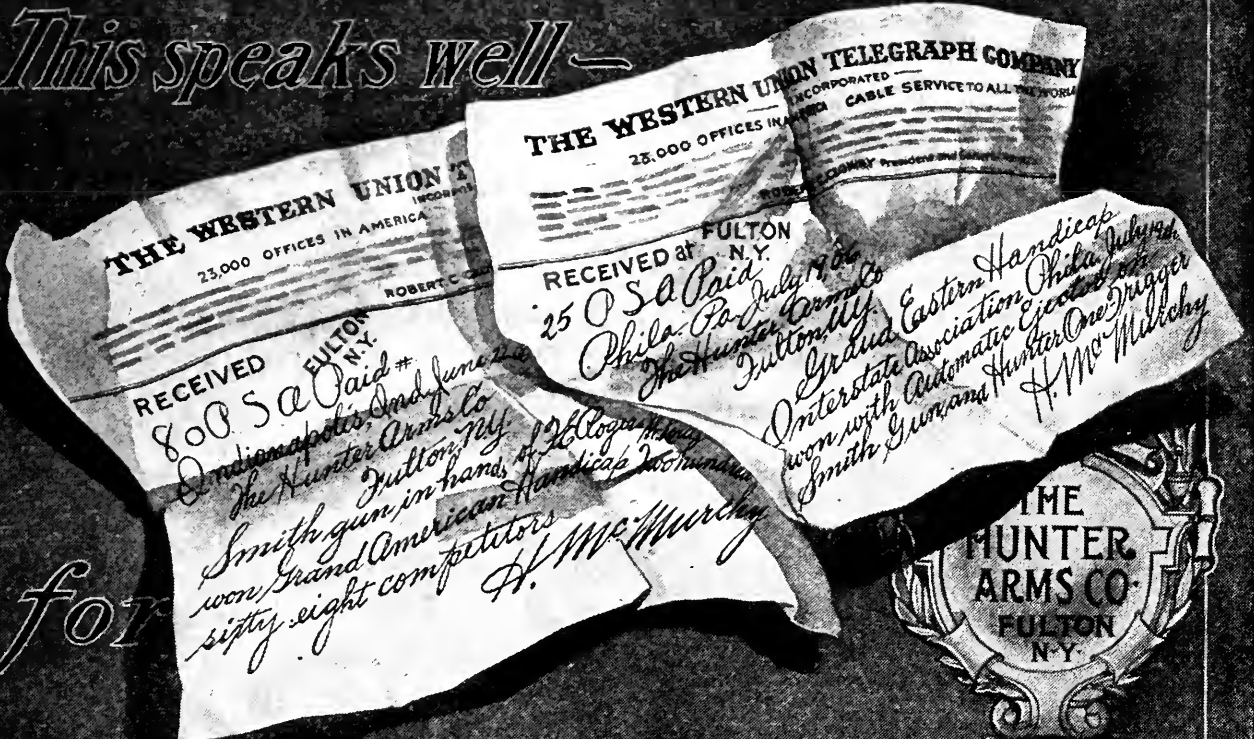 This speaks well —
THE WESTERN UNION T
INCORPO
23,000 OFFICES IN AMERICA
ROBERT C.
RECEIVED
FULTON
N.Y.
80 P S a Paid #
Indianapolis, Ind, June 22
The Hunter Arms Co
Fulton, N.Y.
Smith gun in hands of
won Grand American Handicap Two hundred
sixty eight competitors
H. McMurchy
THE WESTERN UNION TELEGRAPH COMPANY
INCORPORATED
23,000 OFFICES IN AMERICA CABLE SERVICE TO ALL THE WORLD
President and
RECEIVED at
FULTON
N.Y.
25 P S a Paid
Phila. Pa. July 1906
The Hunter Arms Co
Fulton, N.Y.
Grand Eastern Handicap
Interstate Association Phila. July
won with Automatic Ejector on
Smith Gun and Hunter One Trigger
H. McMurchy
for
THE
HUNTER
ARMS CO.
FULTON
N.Y.